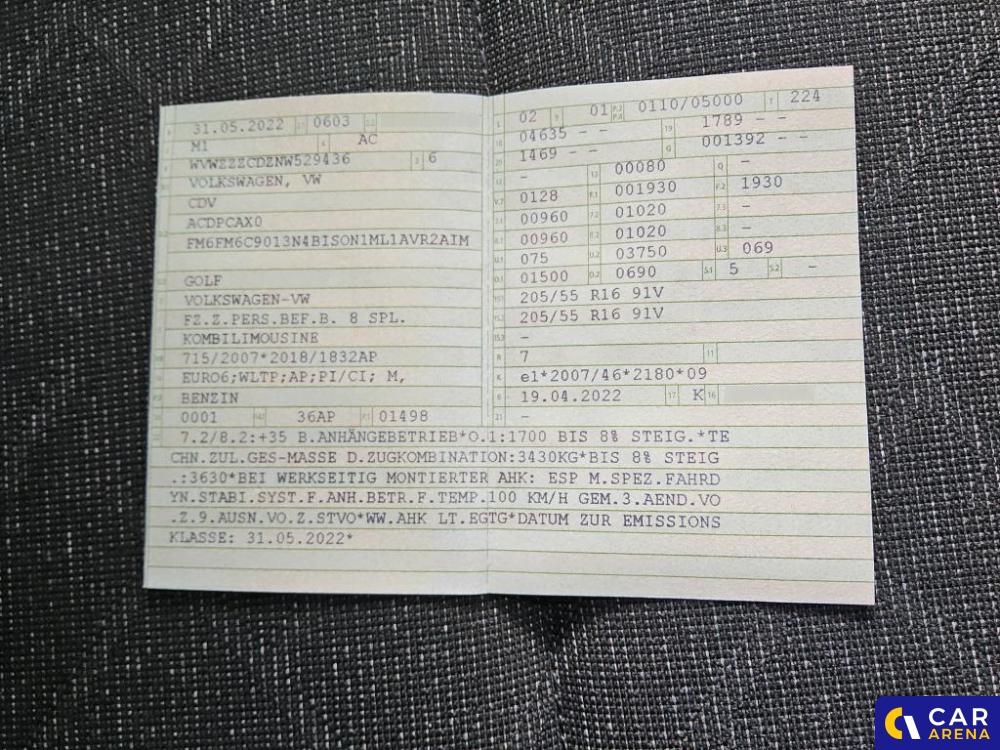 31.05.2022 2.1 0603 2.2
M1 4 AC
WVWZZZCDZNW529436 3 6
VOLKSWAGEN, VW
CDV
ACDPCAX0
FM6FM6C9013N4BISON1ML1AVR2AIM
GOLF
VOLKSWAGEN-VW
FZ.Z.PERS.BEF.B. 8 SPL.
KOMBILIMOUSINE
715/2007*2018/1832AP
EURO6;WLTP;AP;PI/CI; M,
BENZIN
0001 14.1 36AP P.1 01498
L 02 9 01 P.2 P.4 0110/05000 T 224
18 04635 - - 19 1789 - -
20 1469 - - G 001392 - -
12 - 13 00080 Q -
V.7 0128 F.1 001930 F.2 1930
7.1 00960 7.2 01020 7.3 -
8.1 00960 8.2 01020 8.3 -
U.1 075 U.2 03750 U.3 069
O.1 01500 O.2 0690 S.1 5 S.2 -
15.1 205/55 R16 91V
15.2 205/55 R16 91V
15.3 -
R 7 11
K e1*2007/46*2180*09
6 19.04.2022 17 K 16
21 -
7.2/8.2:+35 B.ANHÄNGEBETRIEB*O.1:1700 BIS 8% STEIG.*TE
CHN.ZUL.GES-MASSE D.ZUGKOMBINATION:3430KG*BIS 8% STEIG
.:3630*BEI WERKSEITIG MONTIERTER AHK: ESP M.SPEZ.FAHRD
YN.STABI.SYST.F.ANH.BETR.F.TEMP.100 KM/H GEM.3.AEND.VO
.Z.9.AUSN.VO.Z.STVO*WW.AHK LT.EGTG*DATUM ZUR EMISSIONS
KLASSE: 31.05.2022*
CAR
ARENA